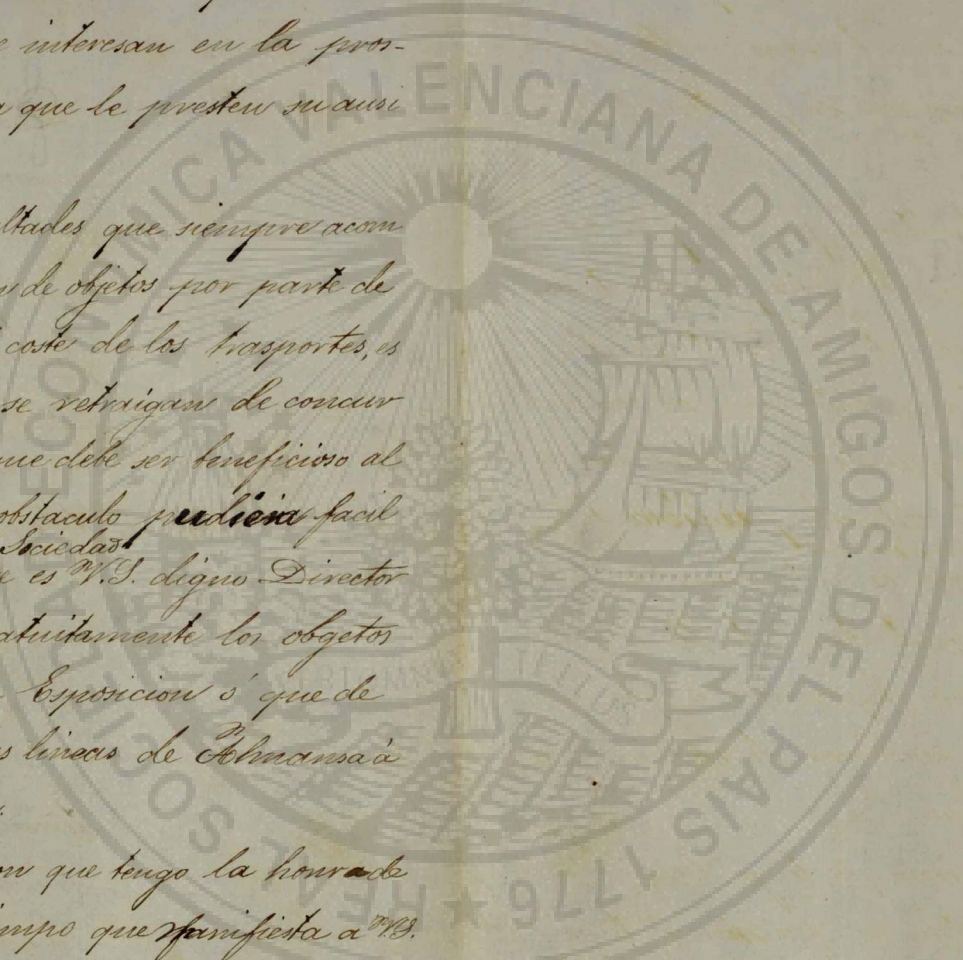 e interesan en la pros-
a que le presten su ausi
ltades que siempre acom
n de objetos por parte de
coste de los trasportes, es
se retraigan de concur
ue debe ser beneficioso al
obstaculo pudiera facil
Sociedad
e es V.S. digno Director
atuitamente los obgetos
Esposicion ó que de
s lineas de Almansa á
on que tengo la honra de
mpo que manifiesta a V.S.
REAL SOCIEDAD ECONÓMICA VALENCIANA DE AMIGOS DEL PAIS 1776